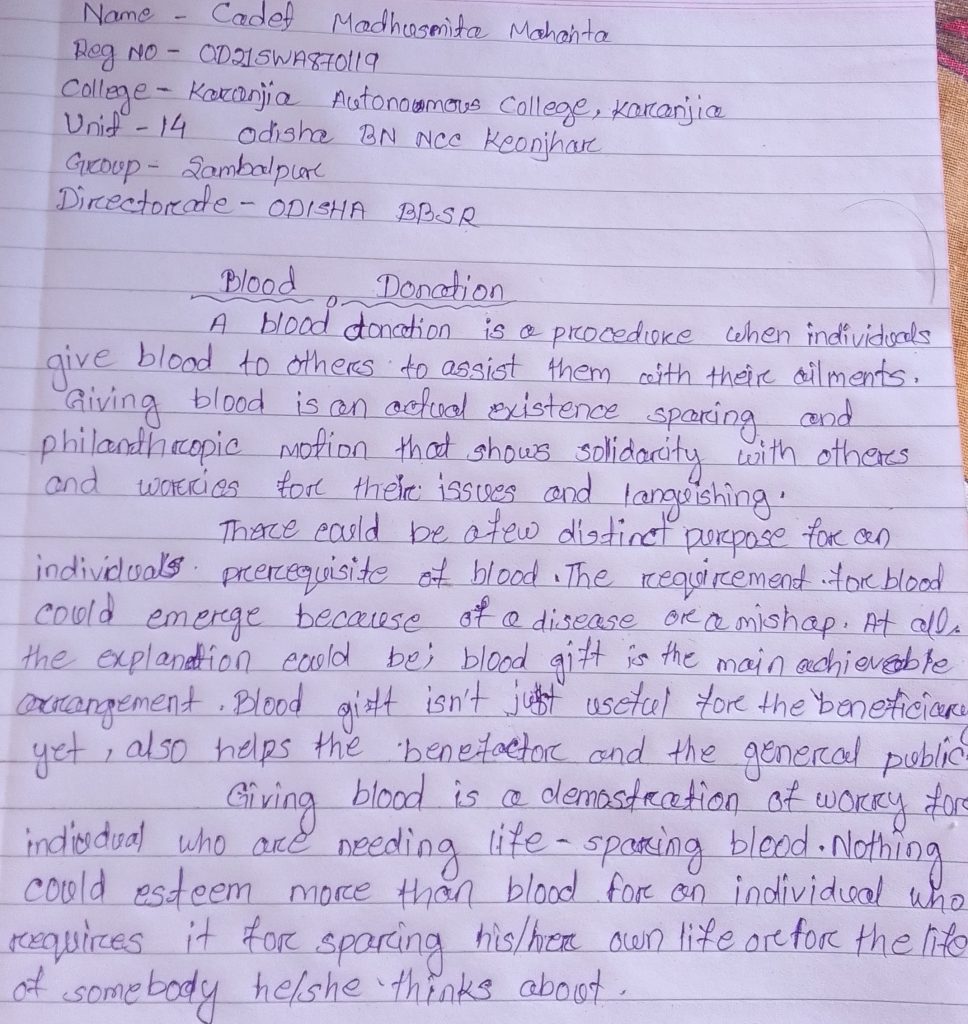 Name - Cadet Madhusmita Mahanta
Reg NO - OD21SWA870119
College - Karanjia Autonoumous College, Karanjia
Unit - 14 Odisha BN NCC Keonjhar
Group - Sambalpur
Directorate - ODISHA BBSR
Blood Donation
A blood donation is a procedure when individuals
give blood to others to assist them with their ailments.
Giving blood is an actual existence sparing and
philandhropic motion that shows solidarity with others
and worries for their issues and languishing.
There could be a few distinct purpose for an
individual's prerequisite of blood. The requirement for blood
could emerge because of a disease or a mishap. At all
the explanation could be; blood gift is the main achievable
arrangement. Blood gift isn't just useful for the beneficiary
yet, also helps the benefactor and the general public.
Giving blood is a demostration of worry for
individual who are needing life-sparing blood. Nothing
could esteem more than blood for an individual who
requires it for sparing his/her own life or for the life
of somebody he/she thinks about.